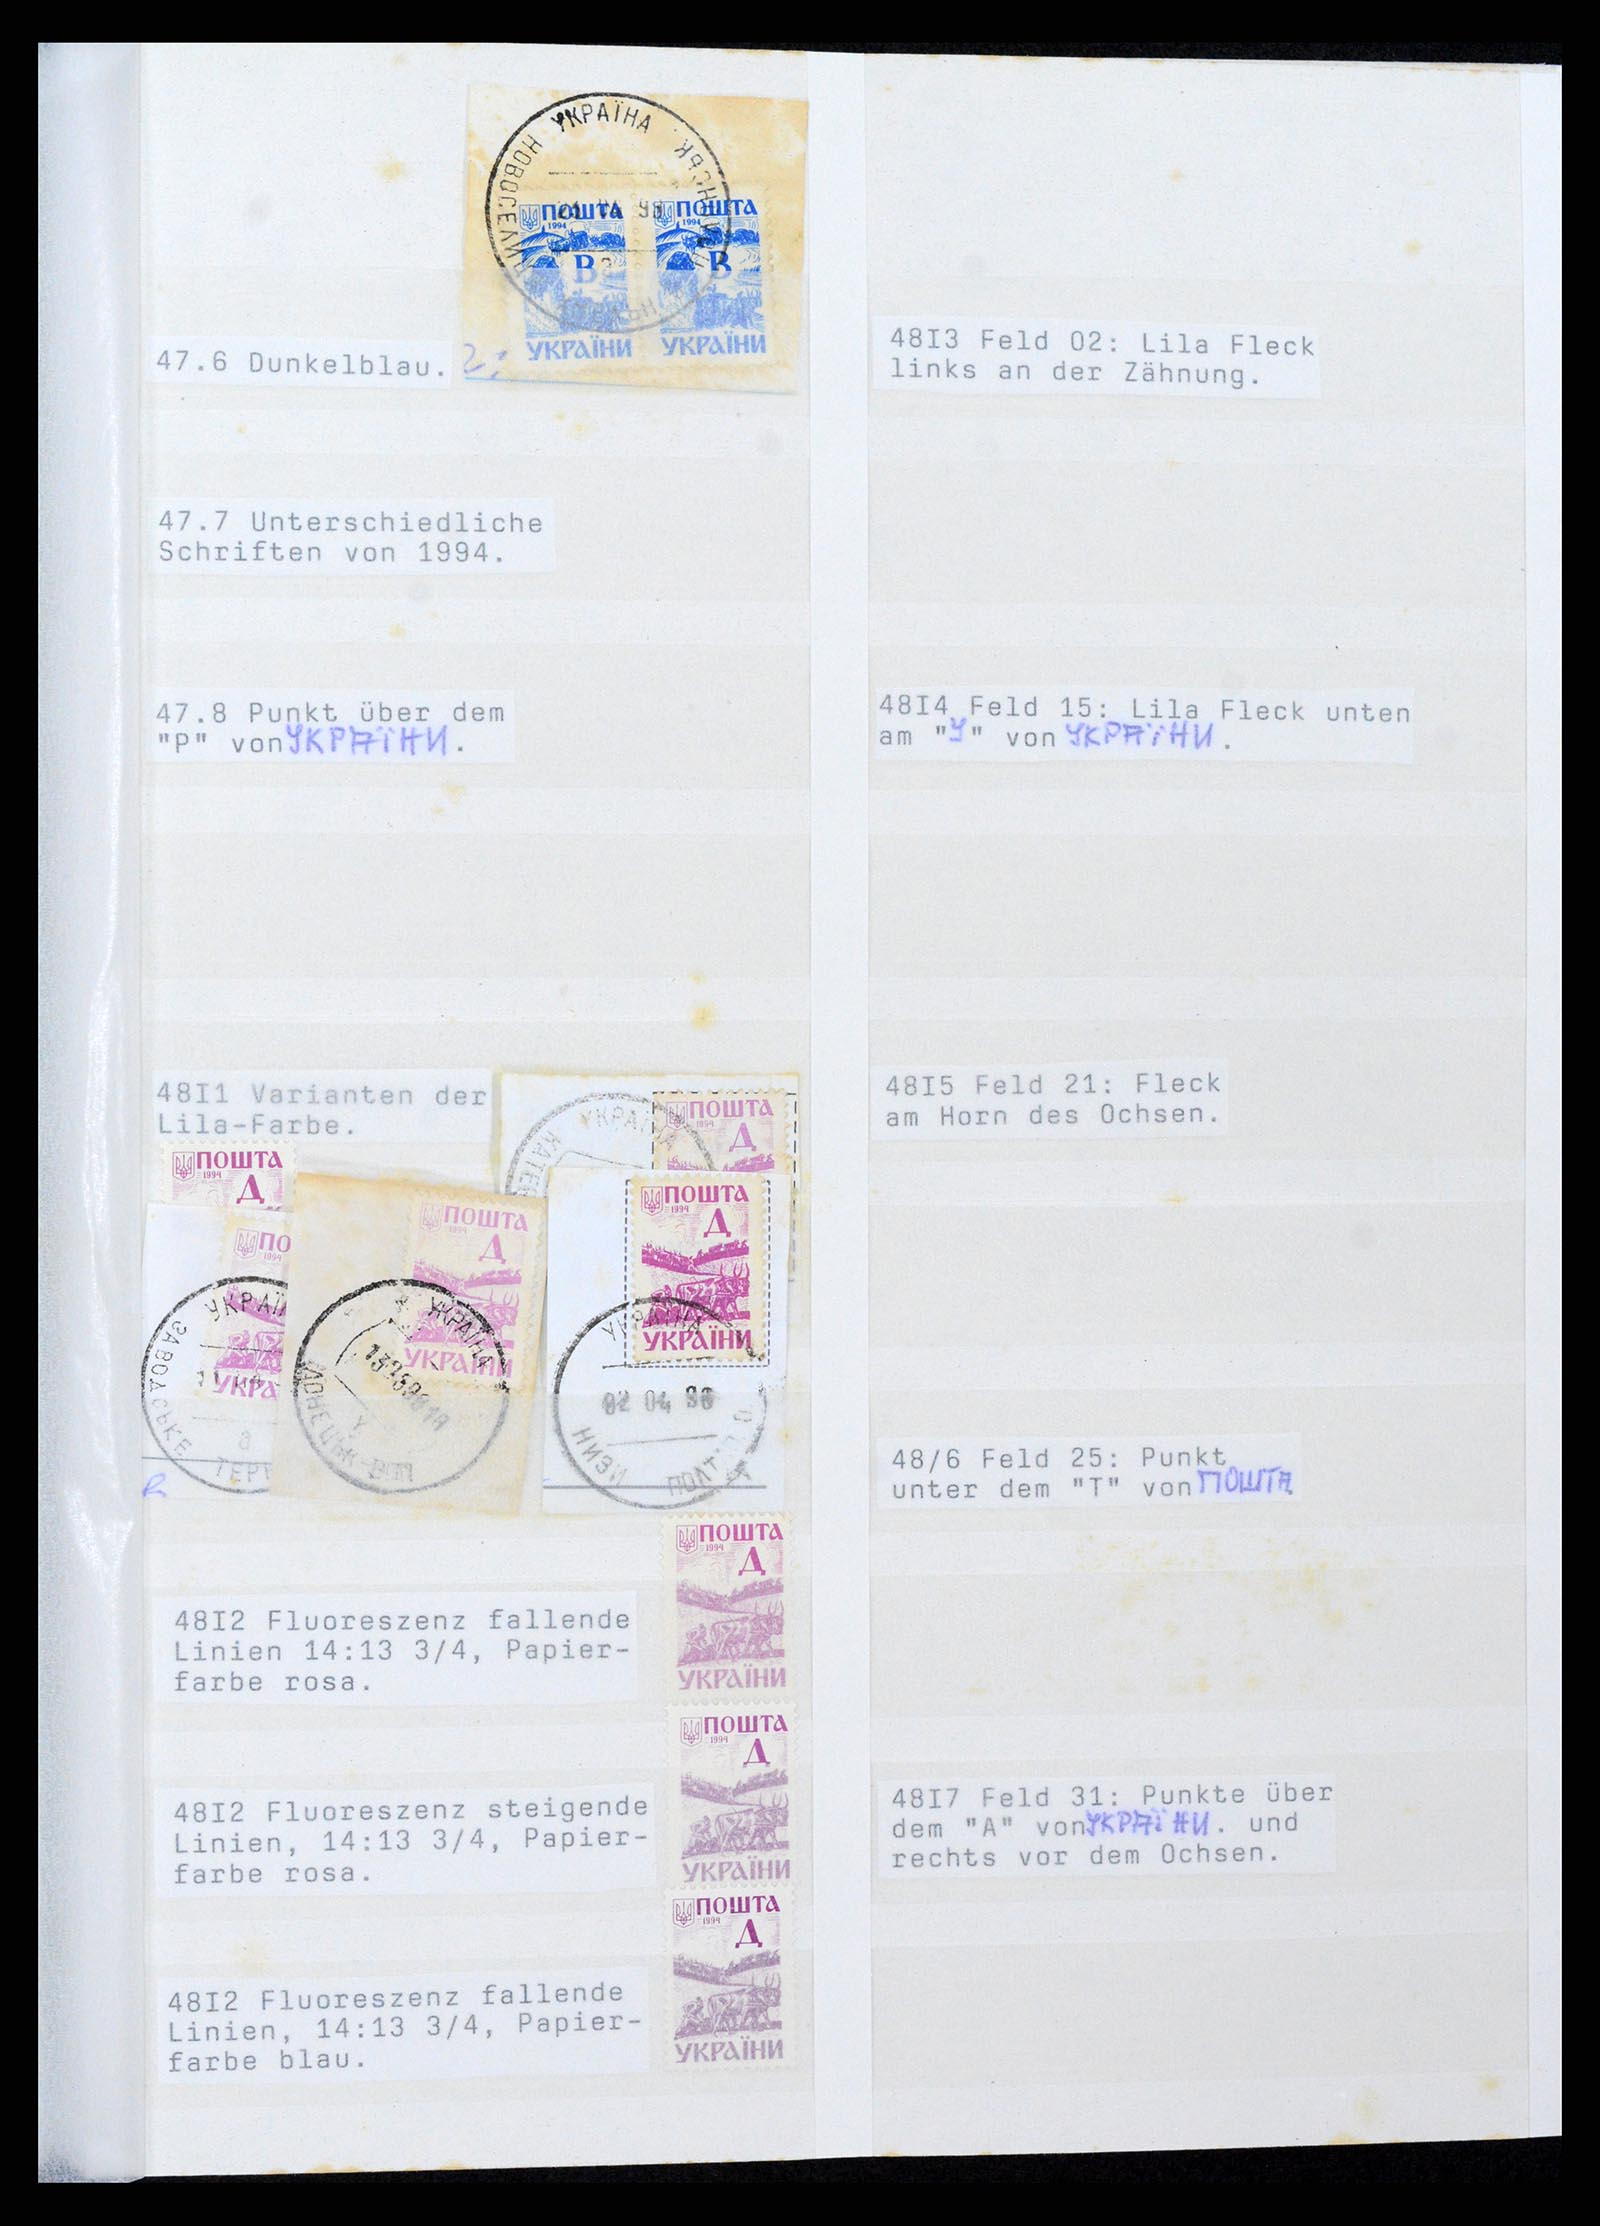 УКРАЇНА
ПОШТА ПОШТА
1994 1994
В В
УКРАЇНИ УКРАЇНИ
47.6 Dunkelblau.
47.7 Unterschiedliche
Schriften von 1994.
47.8 Punkt über dem
"P" von УКРАЇНИ.
48I1 Varianten der
Lila-Farbe.
УКРАЇНА
ПОШТА
1994
Д
ПОШТА
1994
Д
ПОШТА
1994
Д
УКРАЇНИ
УКРАЇНА
02 04 96
НИЗИ
ПОШТА
1994
Д
УКРАЇНИ
УКРАЇНА
ДОНЕЦЬК
ПО
1994
УКРАЇ
УКРА
ЗАВОДСЬКЕ
а
ПОШТА
1994
Д
УКРАЇНИ
48I2 Fluoreszenz fallende
Linien 14:13 3/4, Papier-
farbe rosa.
ПОШТА
1994
Д
УКРАЇНИ
48I2 Fluoreszenz steigende
Linien, 14:13 3/4, Papier-
farbe rosa.
ПОШТА
1994
Д
УКРАЇНИ
48I2 Fluoreszenz fallende
Linien, 14:13 3/4, Papier-
farbe blau.
48I3 Feld 02: Lila Fleck
links an der Zähnung.
48I4 Feld 15: Lila Fleck unten
am "У" von УКРАЇНИ.
48I5 Feld 21: Fleck
am Horn des Ochsen.
48/6 Feld 25: Punkt
unter dem "T" von ПОШТА
48I7 Feld 31: Punkte über
dem "A" von УКРАЇНИ. und
rechts vor dem Ochsen.